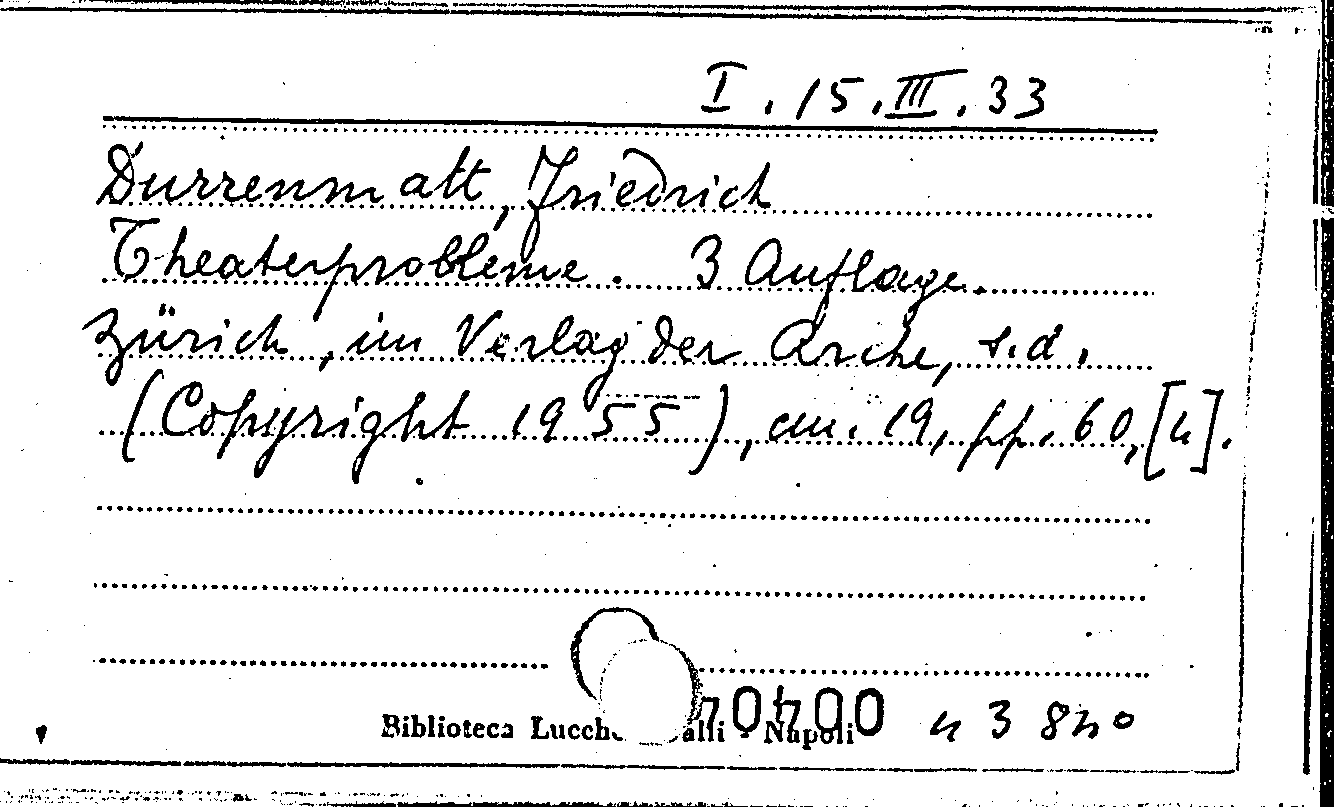 I.15.III.33
Durrenmatt, Friedrich
Theaterprobleme. 3 Auflage.
Zürich, im Verlag der Arche, s.d.
(Copyright 1955), cm. 19, pp. 60, [4].
Biblioteca Lucch alli - Napoli